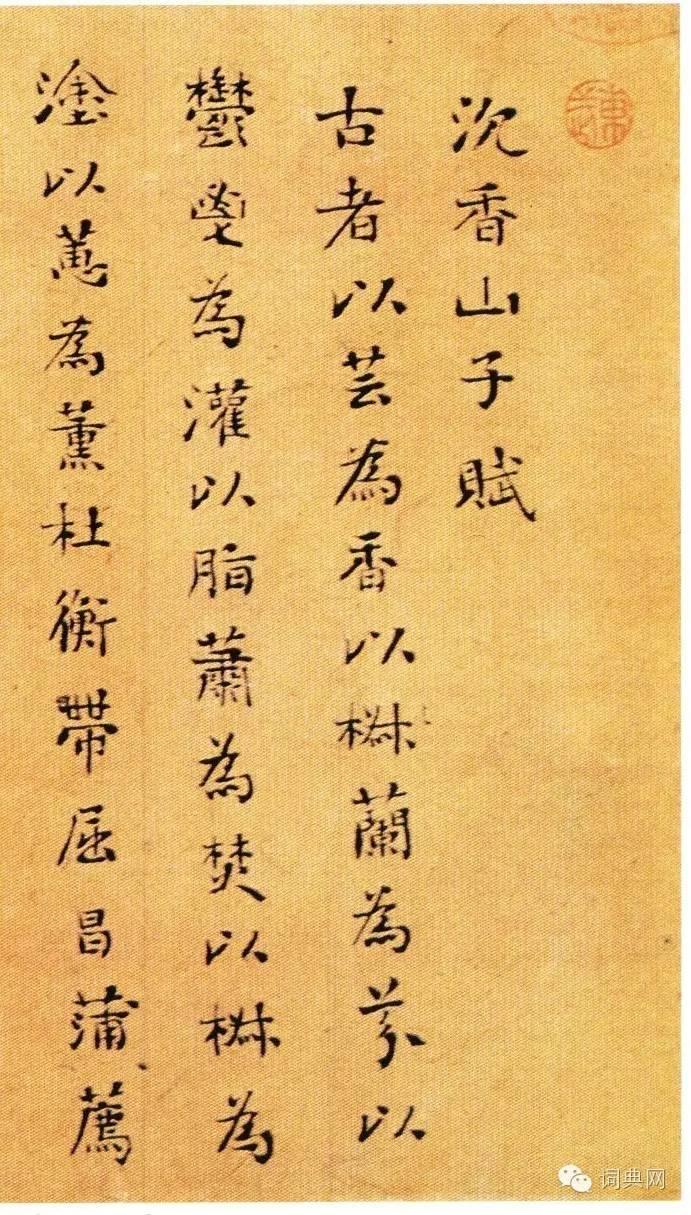 沉香山子賦
古者以芸為香以椒蘭為芬以
鬱鬯為灌以脂蕭為焚以椒為
塗以蕙為薰杜衡帶屈昌蒲薦
词典网